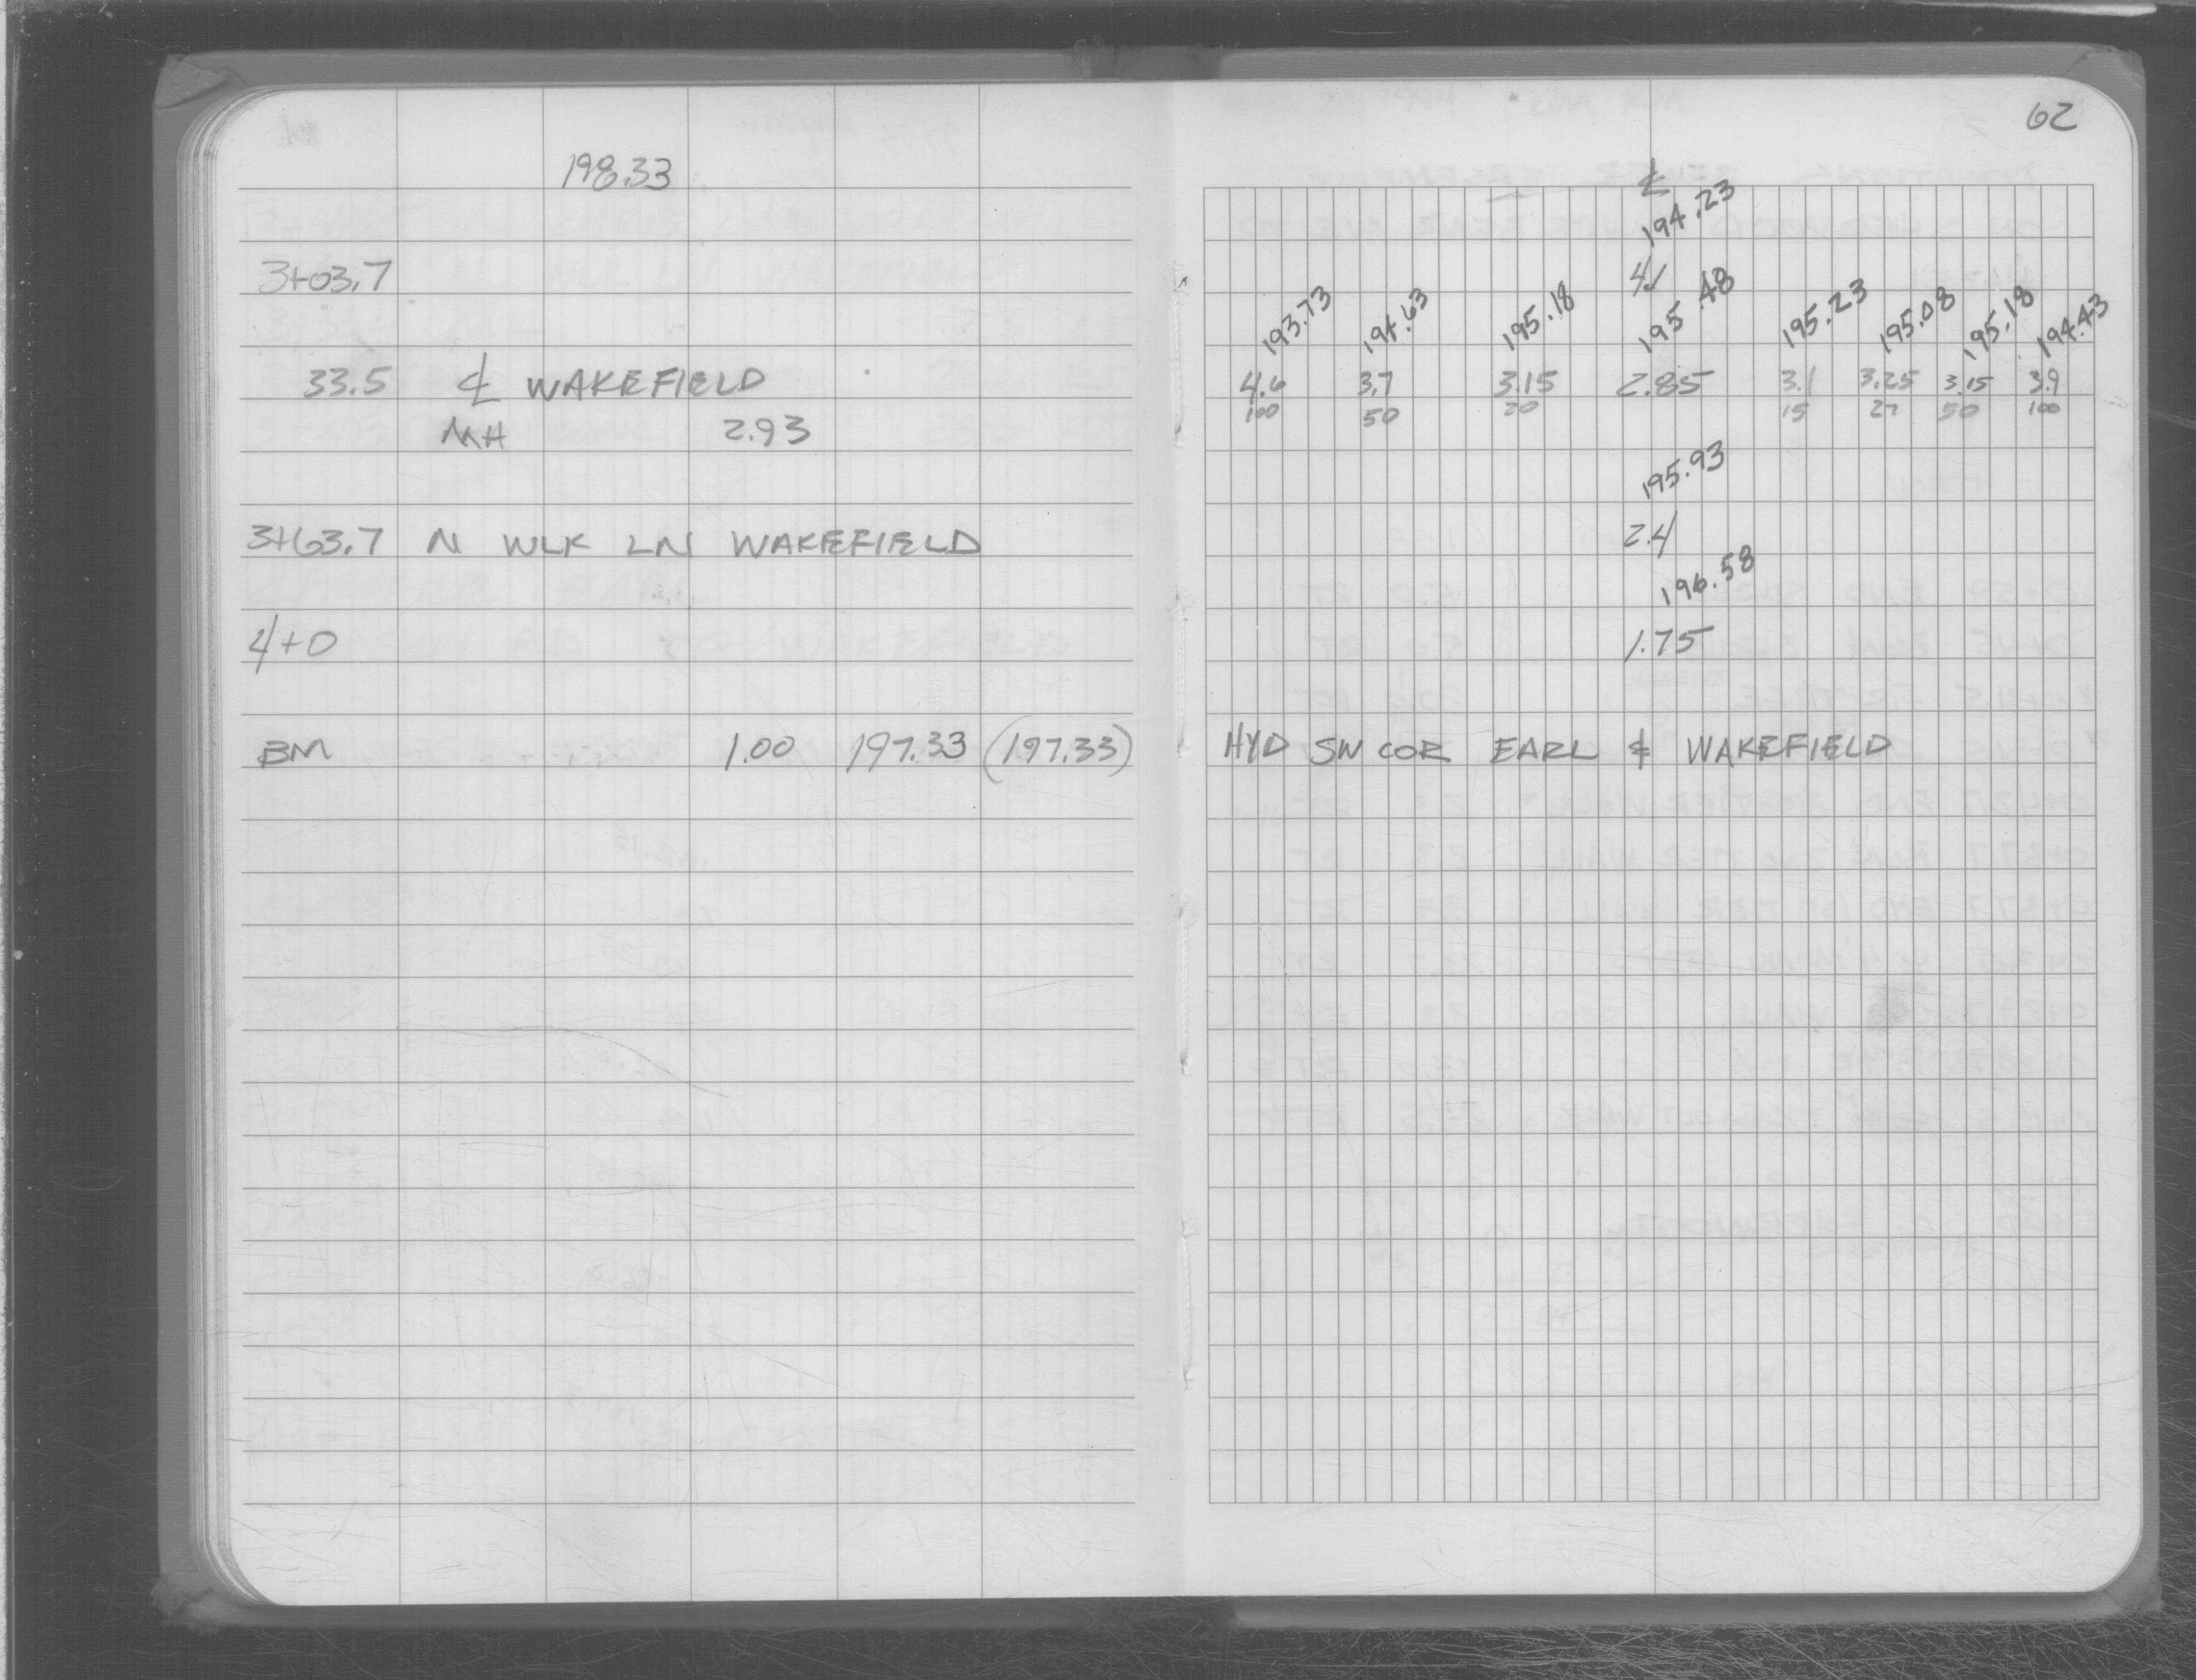 62
198.33
℄
194.23
3+03.7 4.1
193.73 194.63 195.18 195.48 195.23 195.08 195.18 194.43
33.5 ℄ WAKEFIELD 4.6 3.7 3.15 2.85 3.1 3.25 3.15 3.9
100 50 20 15 27 50 100
MH 2.93
195.93
3+63.7 N WLK LN WAKEFIELD 2.4
196.58
4+0 1.75
BM 1.00 197.33 (197.33) HYD SW COR EARL & WAKEFIELD